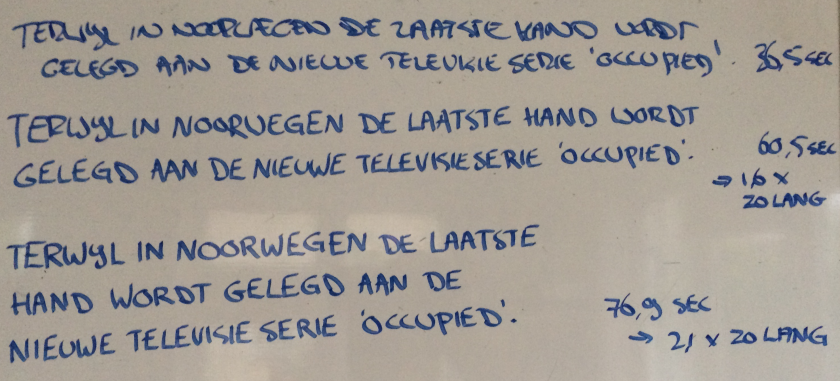 TERWIJL IN NOORWEGEN DE LAATSTE HAND WORDT
GELEGD AAN DE NIEUWE TELEVISIE SERIE 'OCCUPIED'. 36,5 SEC
TERWIJL IN NOORWEGEN DE LAATSTE HAND WORDT
GELEGD AAN DE NIEUWE TELEVISIE SERIE 'OCCUPIED'. 60,5 SEC
→ 1,6 x
ZO LANG
TERWIJL IN NOORWEGEN DE LAATSTE
HAND WORDT GELEGD AAN DE
NIEUWE TELEVISIE SERIE 'OCCUPIED'.
76,9 SEC
→ 2,1 x ZO LANG